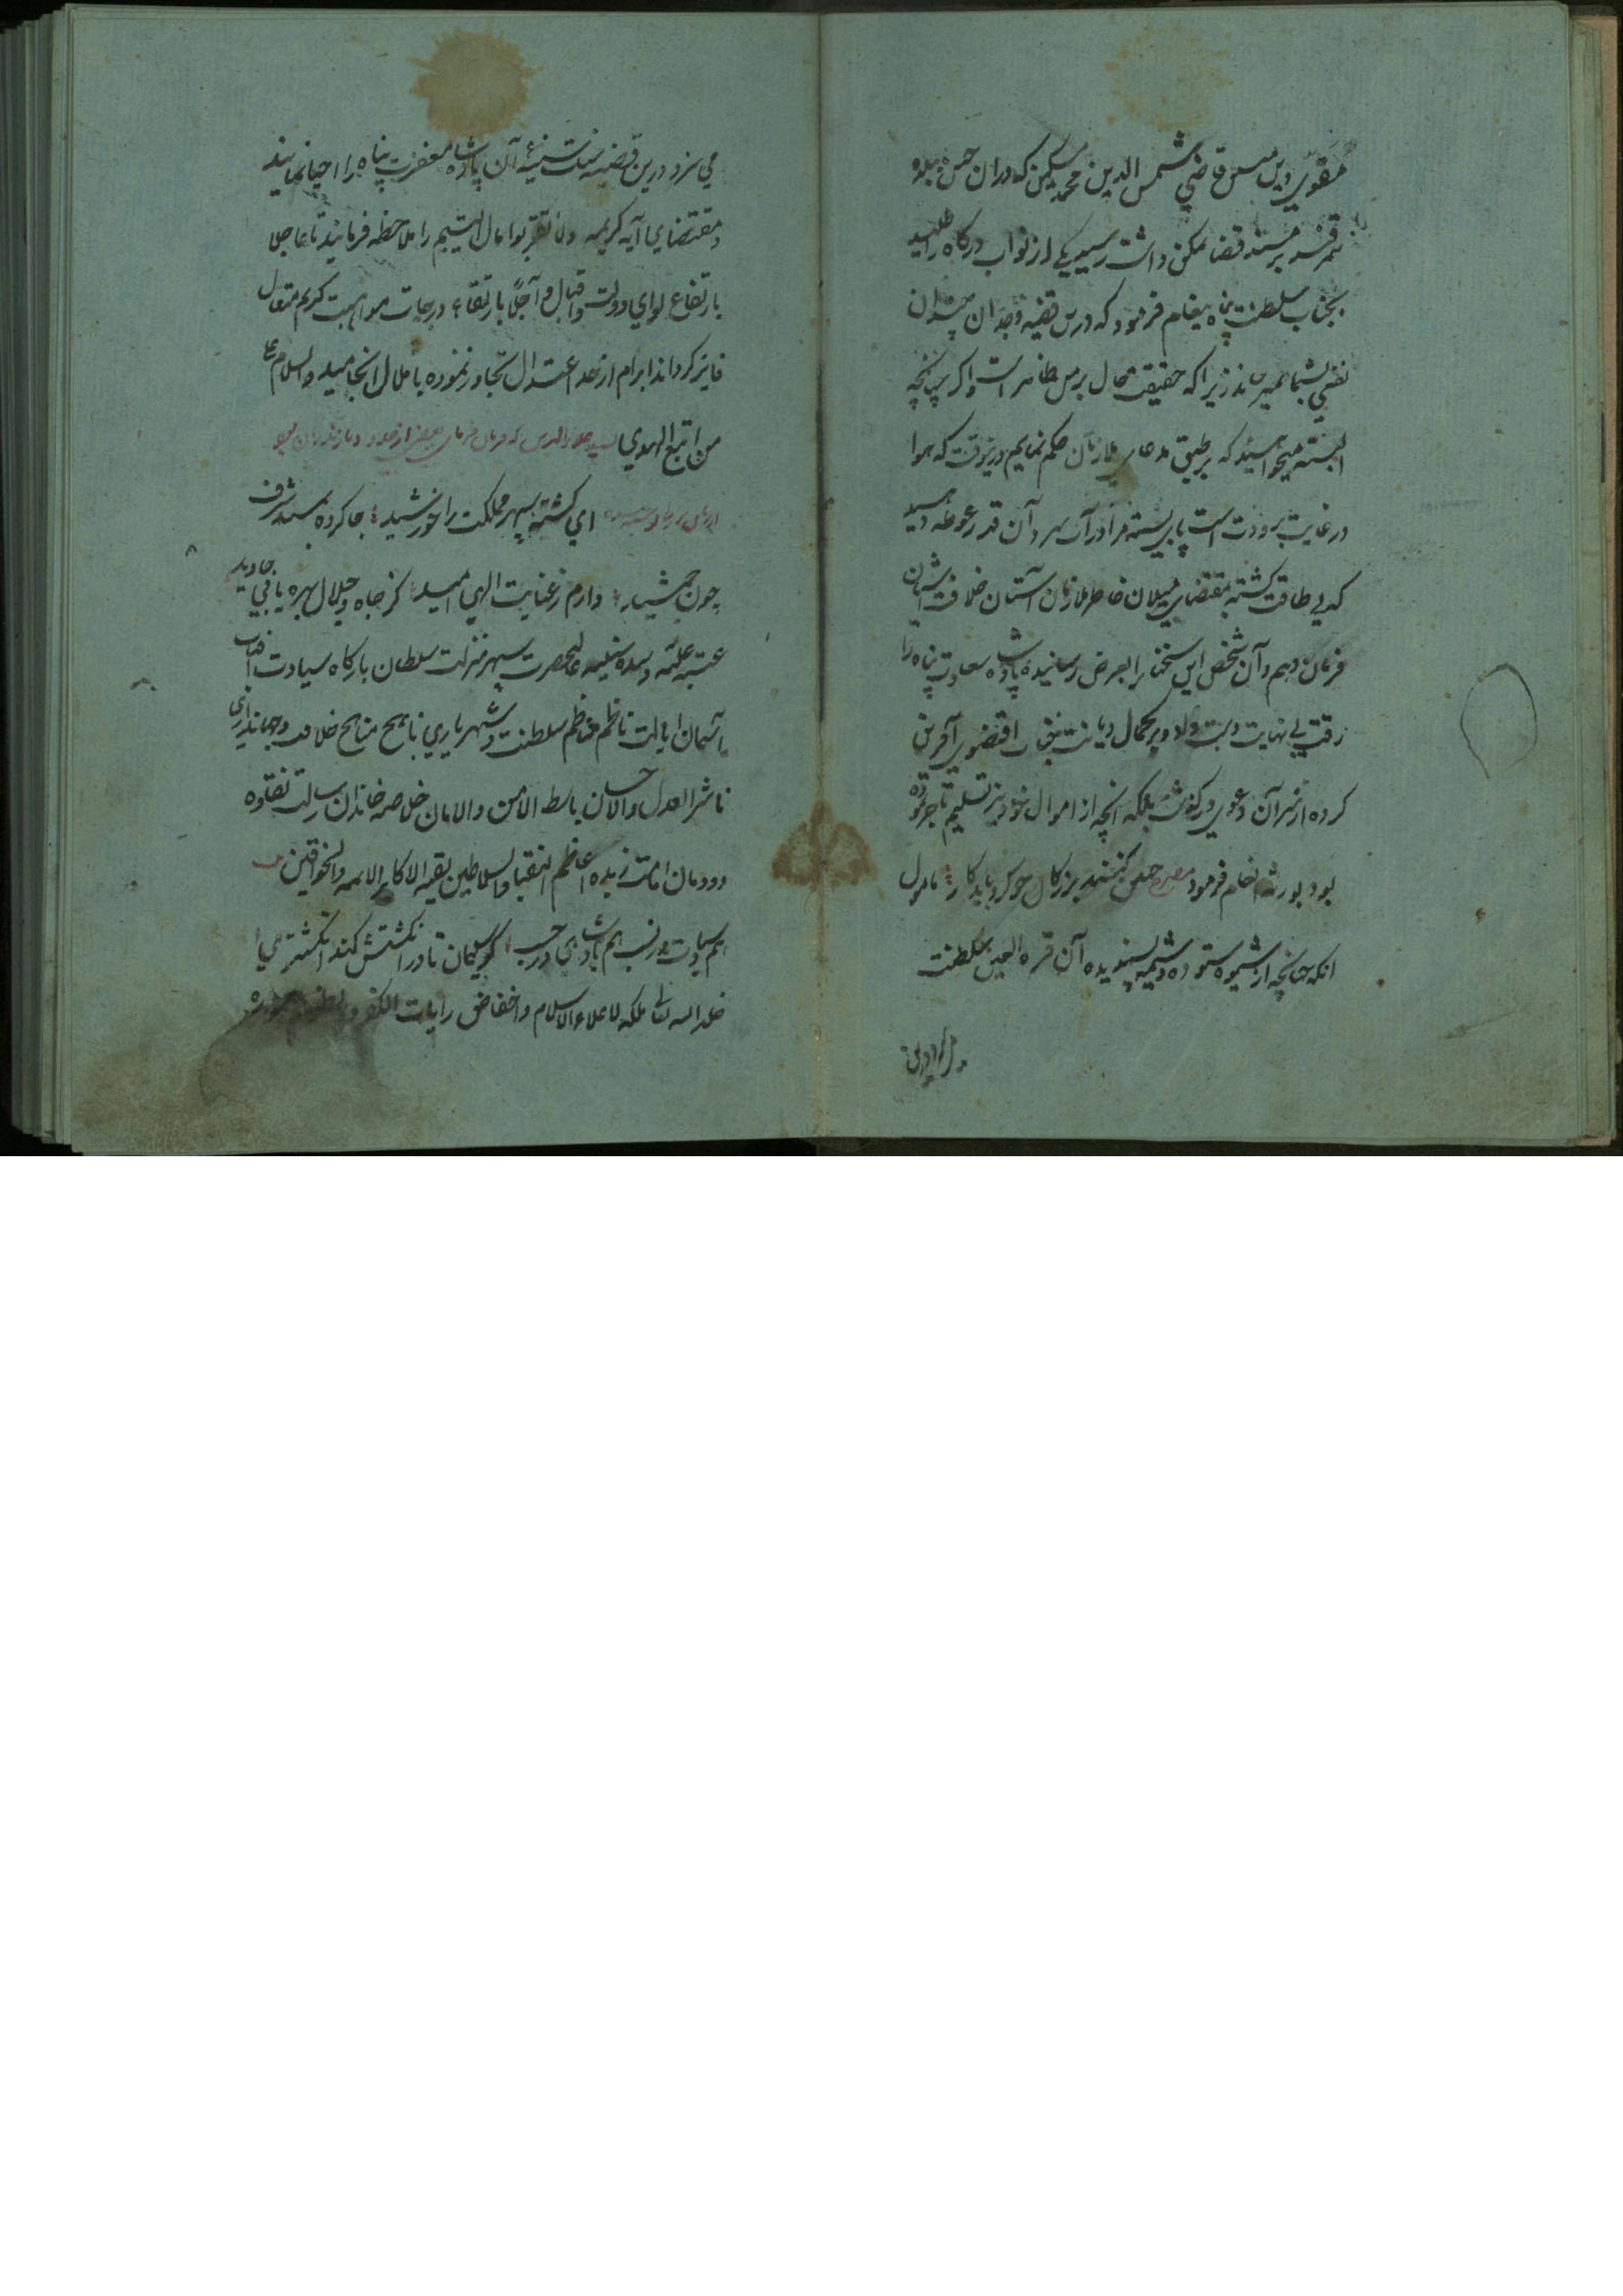 قاضی شمس الدین محمد مسکین که در آن حین ببلده
سمرقند بر مسند قضا تمکن داشت رسید یکی از نواب درکاه را طلبید
بجناب سلطنت پناه پیغام فرمود که درین قضیه وجدان چندان
نفعی بشما نمیرساند زیرا که حقیقت حال بر من ظاهر است و اکر چنانچه
البته میخواهید که بر طبق مدعای ملازمان حکم نمایم درینوقت که هوا
در غایت برودت است پای بسته مرا در آب سرد آن قدر غوطه دهید
که بی طاقت کشته بمقتضای میلان خاطر ملازمان آستان خلافت آشیان
فرمان دهم و آن شخص این سخنان را بعرض رسانیده پادشاه سعادت پناه را
رقت بی نهایت دست داد و بر کمال دیانت اقضوی آفرین
کرده از سر آن دعوی در کذشت بلکه آنچه از اموال خود نیز تسلیم تاجر نموده
بود بورثه انعام فرمود مصرع چنین کنند بزرکان چو کرد باید کار مامول
آنکه چنانچه از شیوه ستوده و شیمه پسندیده آن قرة العین سلطنت
می سزد درین قضیه سنت سنیه آن پادشاه مغفرت پناه را احیا نمایند
و مقتضای آیه کریمه ولا تقربوا مال الیتیم را ملاحظه فرمایند تا عاجلا
بارتفاع لوای دولت و اقبال و آجلا بارتقاء درجات مواهب کریم متعال
فایز کردند ابرام از حد اعتدال تجاوز نموده باملال انجامید والسلام علی
من اتبع الهدی
ای کشته سپهر مملکت را خورشید جا کرده بمسند شرف
چون جمشید دارم ز عنایت الهی امید کز جاه و جلال بهره یابی جاوید
عتبه علیه و سده سنیه عالیحضرت سپهر منزلت سلطان بارکاه سیادت آفتاب
آسمان ایالت ناظم مناظم سلطنت و شهریاری ناهج مناهج خلافت و جهانداری
ناشر العدل والاحسان باسط الامن والامان خلاصه خاندان رسالت نقاوه
دودمان امامت زبده اعاظم النقبا والسلاطین بقیه الاکابر الائمه والخواقین
هم سیادت در نسب هم پادشاهی در حسب کو سلیمان تا در انکشتش کند انکشتری
خلد الله تعالی ملکه لاعلاء الاسلام و اخفاض رایات الکفر